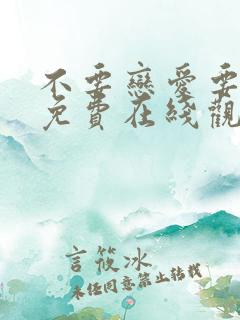 不要戀愛要
免費在綫觀
言筱冰
未经同意禁止转载